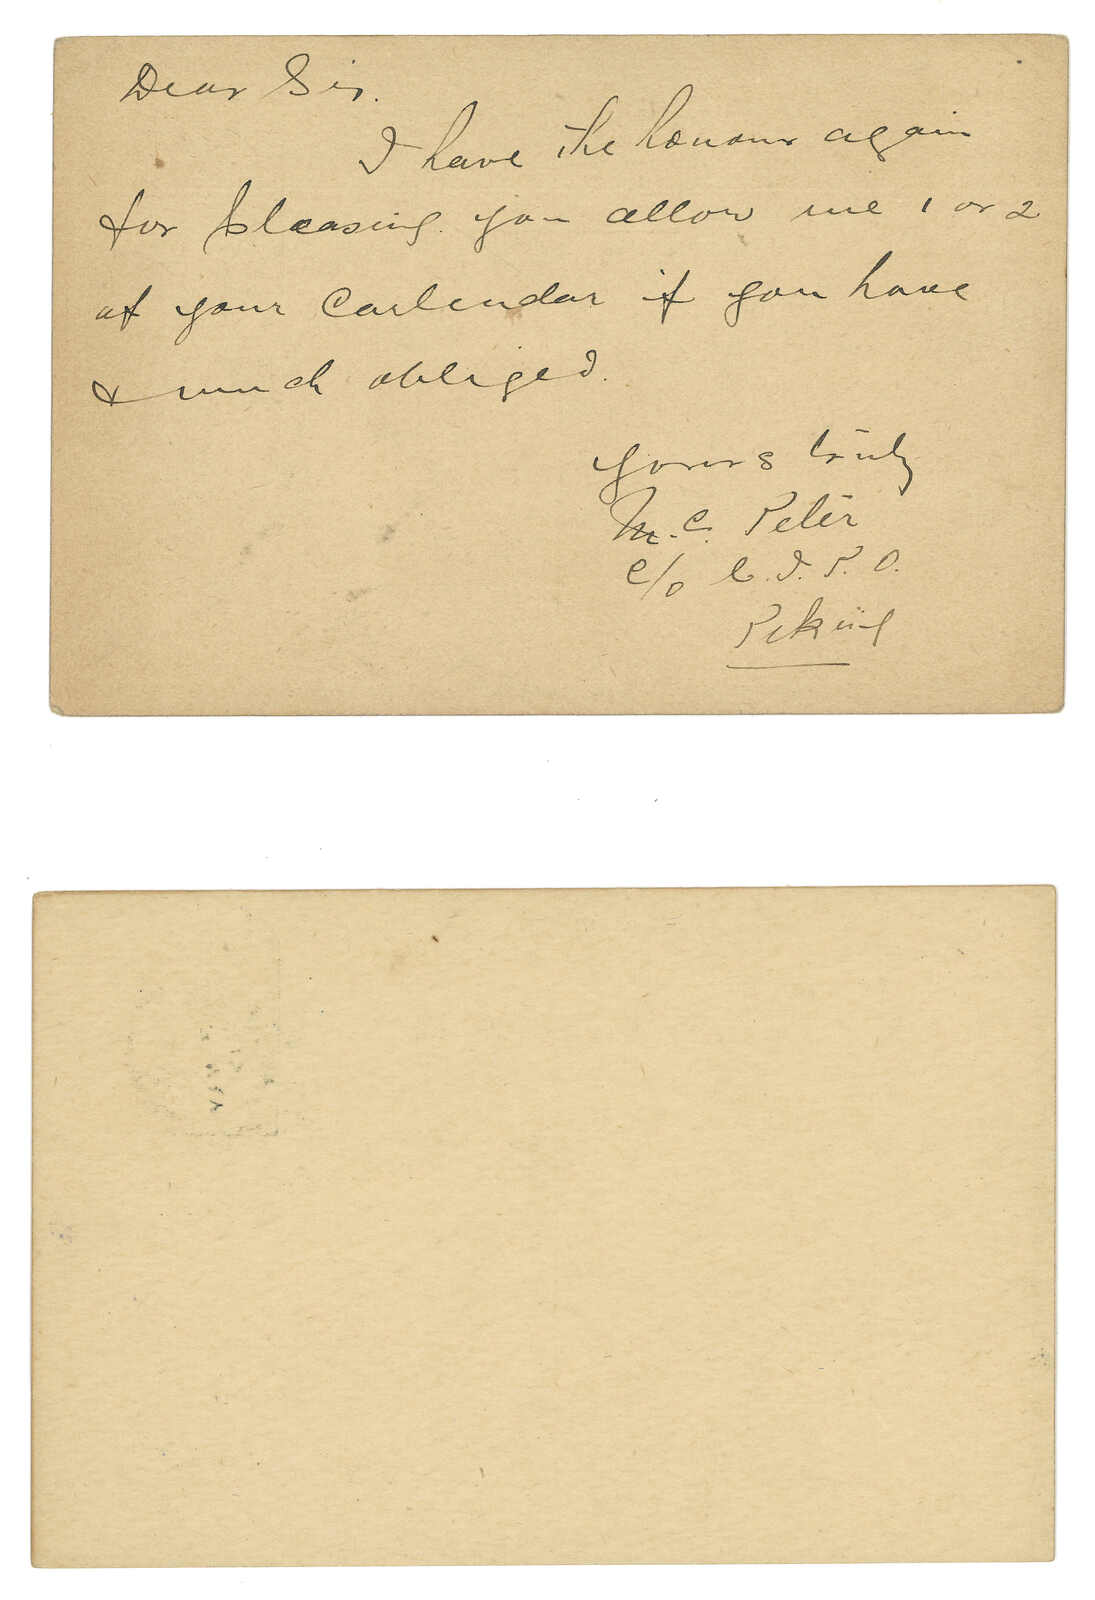 Dear Sir.
I have the honour again
for pleasing you allow me 1 or 2
of your Carlendar if you have
& much obliged.
yours truly
M. C. Peter
c/o C. I. P. O.
Peking